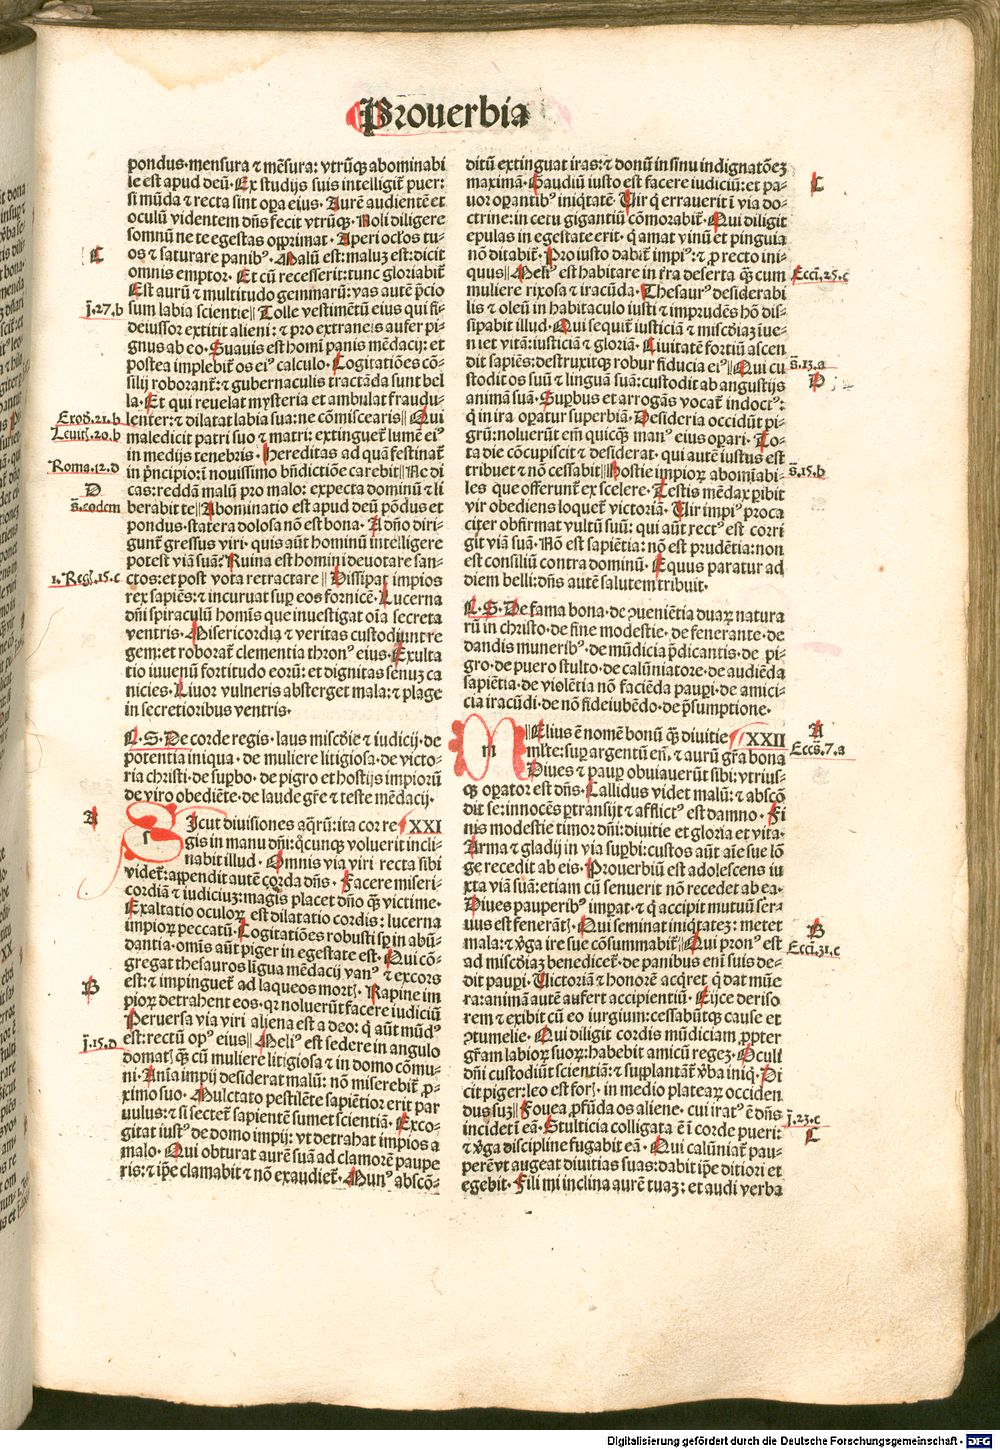 Prouerbia
pondus·mensura ⁊ mēsura: vtrūqꝫ abominabi
le est apud deū·Ex studijs suis intelligit᷑ puer:
si mūda ⁊ recta sint oꝑa eius· Aurē audientē et
oculū videntem dn̄s fecit vtrūqꝫ· Noli diligere
somnū ne te egestas opprimat· Aperi oct̄os tu-
os ⁊ saturare panibꝰ· Malū est: maluꝫ est: dicit
omnis emptor· Et cū recesserit: tunc gloriabit᷑
Est aurū ⁊ multitudo gemmarū: vas autē p̄cio
sum labia scientie‖ Tolle vestimētū eius qui fi-
deiussor extitit alieni: ⁊ pro extraneis aufer pi-
gnus ab eo·Suauis est homī panis mēdacij: et
postea implebit᷑ os eiꝰ calculo· Cogitatiōes cō-
silij roborant᷑: ⁊ gubernaculis tractāda sunt bel
la· Et qui reuelat mysteria et ambulat fraudu-
lenter: ⁊ dilatat labia sua: ne cōmiscearis‖ Qui
maledicit patri suo ⁊ matri: extinguet᷑ lumē eiꝰ
in medijs tenebris· Hereditas ad quā festinat᷑
in p̄ncipio: ī nouissimo bn̄dictiōe carebit‖ Ne di
cas: reddā malū pro malo: expecta dominū ⁊ li
berabit te‖ Abominatio est apud deū pōdus et
pondus·statera dolosa nō est bona· A dn̄o diri-
gunt᷑ gressus viri· quis aūt hominū intelligere
potest viā suā? Ruina est homini deuotare san-
ctos: et post vota retractare‖ Dissipat impios
rex sapiēs: ⁊ incuruat suꝑ eos fornicē· Lucerna
dn̄i spiraculū homīs que inuestigat oīa secreta
ventris· Misericordia ⁊ veritas custodiunt re
gem: et roborat᷑ clementia thronꝰ eius· Exulta
tio iuuenū fortitudo eorū: et dignitas senuꝫ ca
nicies· Liuor vulneris absterget mala: ⁊ plage
in secretioribus ventris·
C·S·De corde regis·laus miscd̄ie ⁊ iudicij·de
potentia iniqua· de muliere litigiosa· de victo-
ria christi·de suꝑbo· de pigro et hostijs impiorū
de viro obediēte·de laude gr̄e ⁊ teste mēdacij·
s Icut diuisiones aq̄rū: ita cor re XXI
gis in manu dn̄i: q̄cunqꝫ voluerit incli-
nabit illud· Omnis via viri recta sibi
videt᷑: appendit autē corda dn̄s· Facere miseri-
cordiā ⁊ iudiciuꝫ: magis placet dn̄o qꝫ victime·
Exaltatio oculoꝝ est dilatatio cordis: lucerna
impioꝝ peccatū· Cogitatiōes robusti sp̄ in abū-
dantia· omīs aūt piger in egestate est· Qui cō-
gregat thesauros ligua mēdacij vanꝰ ⁊ excors
est: ⁊ impinget᷑ ad laqueos mortꝭ· Rapine im
pioꝝ detrahent eos· qꝛ noluerūt facere iudiciū
Peruersa via viri aliena est a deo: q̄ aūt mūdꝰ
est: rectū opꝰ eius‖ Meliꝰ est sedere in angulo
domatꝭ qꝫ cū muliere litigiosa ⁊ in domo cōmu-
ni· Anīa impij desiderat malū: nō miserebit᷑ ꝓ-
ximo suo· Mulctato pestilēte sapiētior erit par
uulus: ⁊ si sectet᷑ sapientē sumet scientiā· Exco-
gitat iustꝰ de domo impij: vt detrahat impios a
malo· Qui obturat aurē suā ad clamorē paupe
ris: ⁊ ip̄e clamabit ⁊ nō exaudiet᷑· Munꝰ abscō-
ditū extinguat iras: ⁊ donū in sinu indignatōeꝫ
maximā· Gaudiū iusto est facere iudiciū: et pa-
uor oꝑantibꝰ iniq̄tatē· Vir q̄ errauerit ī via do-
ctrine: in cetu gigantiū cōmorabit᷑· Qui diligit
epulas in egestate erit· q̄ amat vinū et pinguia
nō ditabit᷑· Pro iusto dabit᷑ impiꝰ: ⁊ ꝓ recto ini-
quus‖ Meliꝰ est habitare in tr̄ra deserta qꝫ cum
muliere rixosa ⁊ iracūda· Thesaurꝰ desiderabi
lis ⁊ oleū in habitaculo iusti ⁊ imprudēs hō dis-
sipabit illud· Qui sequit᷑ iusticiā ⁊ miscd̄iaꝫ iue-
niet vitā: iusticiā ⁊ gloriā· Ciuitatē fortiū ascen
dit sapiēs: destruxitqꝫ robur fiducia eiꝰ‖ Qui cu
stodit os suū ⁊ linguā suā: custodit ab angustijs
animā suā· Suꝑbus et arrogās vocat᷑ indoctꝰ:
q̄ in ira oꝑatur superbiā· Desideria occidūt pi-
grū: noluerūt em̄ quicqꝫ manꝰ eius oꝑari· To-
ta die cōcupiscit ⁊ desiderat· qui autē iustus est
tribuet ⁊ nō cessabit‖ Hostie impioꝝ abomīabi-
les que offerunt᷑ ex scelere· Testis mēdax ꝑibit
vir obediens loquet᷑ victoriā· Vir impiꝰ proca
citer obfirmat vultū suū: qui aūt rectꝰ est corri
git viā suā· Nō est sapiētia: nō est prudētia: non
est consiliū contra dominū· Equus paratur ad
diem belli: dn̄s autē salutem tribuit·
C·S·De fama bona·de ꝯueniētia duaꝝ natura
rū in christo·de fine modestie· de fenerante·de
dandis muneribꝰ·de mūdicia p̄dicantis·de pi-
gro·de puero stulto·de calūniatore·de audiēda
sapiētia·de violētia nō faciēda pauꝑi·de amici-
cia iracūdi·de nō fideiubēdo·de p̄sumptione·
m Elius ē nomē bonū qꝫ diuitie XXII
ml̄te: suꝑ argentū em̄· ⁊ aurū gr̄a bona
Diues ⁊ pauꝑ obuiauerūt sibi: vtrius-
qꝫ oꝑator est dn̄s· Callidus videt malū: ⁊ abscō
dit se: innocēs ꝑtransijt ⁊ afflictꝰ est damno· Fi
nis modestie timor dn̄i: diuitie et gloria et vita·
Arma ⁊ gladij in via suꝑbi: custos aūt aīe sue lō
ge recedit ab eis· Prouerbiū est adolescens iu
xta viā suā: etiam cū senuerit nō recedet ab ea·
Diues pauperibꝰ imꝑat· ⁊ q̄ accipit mutuū ser-
uus est fenerātꝭ· Qui seminat iniq̄tateꝫ: metet
mala: ⁊ v̄ga ire sue cōsummabit᷑‖ Qui pronꝰ est
ad miscd̄iaꝫ benedicet᷑· de panibus enī suis de-
dit pauꝑi· Victoriā ⁊ honorē acq̄ret q̄ dat mūe
ra: animā autē aufert accipientiū· Eijce deriso
rem ⁊ exibit cū eo iurgium: cessabūtqꝫ cause et
ꝯtumelie· Qui diligit cordis mūdiciam ꝓpter
gr̄am labioꝝ suoꝝ: habebit amicū regeꝫ· Oculi
dn̄i custodiūt scientiā: ⁊ supplantāt᷑ v̄ba iniq̄· Di
cit piger: leo est forꝭ· in medio plateaꝝ occiden
dus suꝫ‖ Fouea ꝓfūda os aliene· cui iratꝰ ē dn̄s
incidet ī eā· Stulticia colligata ē ī corde pueri:
⁊ v̄ga discipline fugabit eā· Qui calūniat᷑ pau-
perē vt augeat diuitias suas: dabit ip̄e ditiori et
egebit· Fili mi inclina aurē tuaꝫ: et audi verba
C
j̄.27.b
Exod̄.21.b
Leuitꝭ.20.b
Roma.12.d
D
s̄.eodem
1.Regꝭ.15.c
A
B
j̄.15.d
C
Ecci̅.25.c
s̄.13.a
D
s̄.15.b
A
Eccs̄.7.a
B
Ecci̅.31.c
j̄.23.c
C
Digitalisierung gefördert durch die Deutsche Forschungsgemeinschaft - DFG